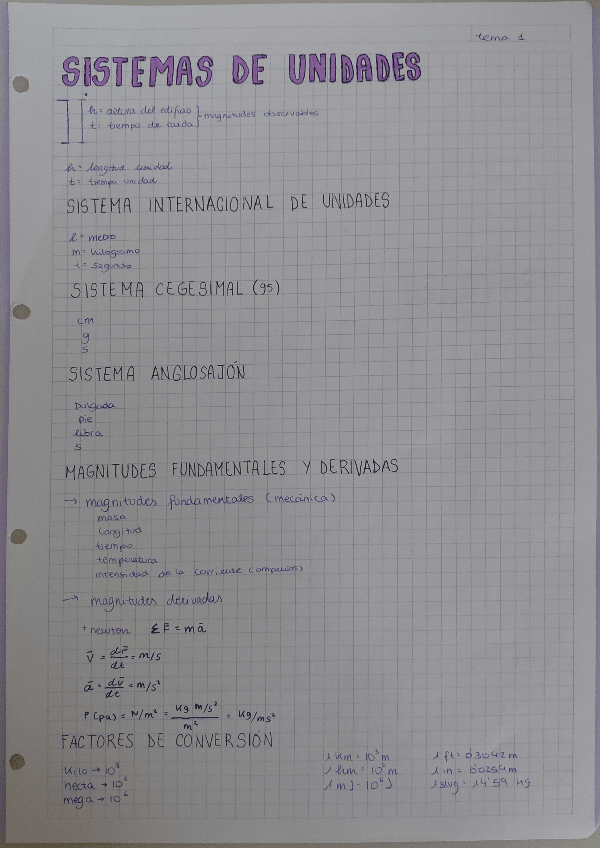 tema 1
SISTEMAS DE UNIDADES
h = altura del edificio
t = tiempo de caída
magnitudes observables
h = longitud unidad
t = tiempo unidad
SISTEMA INTERNACIONAL DE UNIDADES
l = metro
m = kilogramo
t = segundo
SISTEMA CEGESIMAL (gs)
cm
g
s
SISTEMA ANGLOSAJÓN
Pulgada
pie
libra
s
MAGNITUDES FUNDAMENTALES Y DERIVADAS
→ magnitudes fundamentales (mecánica)
masa
longitud
tiempo
temperatura
intensidad de la corriente (amperios)
→ magnitudes derivadas
+ newton Σ F̄ = m ā
v̄ = dr̄/dt = m/s
ā = dv̄/dt = m/s²
P (pa) = N/m² = kg m/s² / m² = kg/ms²
FACTORES DE CONVERSIÓN
kilo → 10³
hecta → 10²
mega → 10⁶
1 km = 10³ m
1 hm = 10² m
1 mJ = 10⁶ J
1 ft = 0'3042 m
1 in = 0'0254 m
1 slug = 14'59 kg